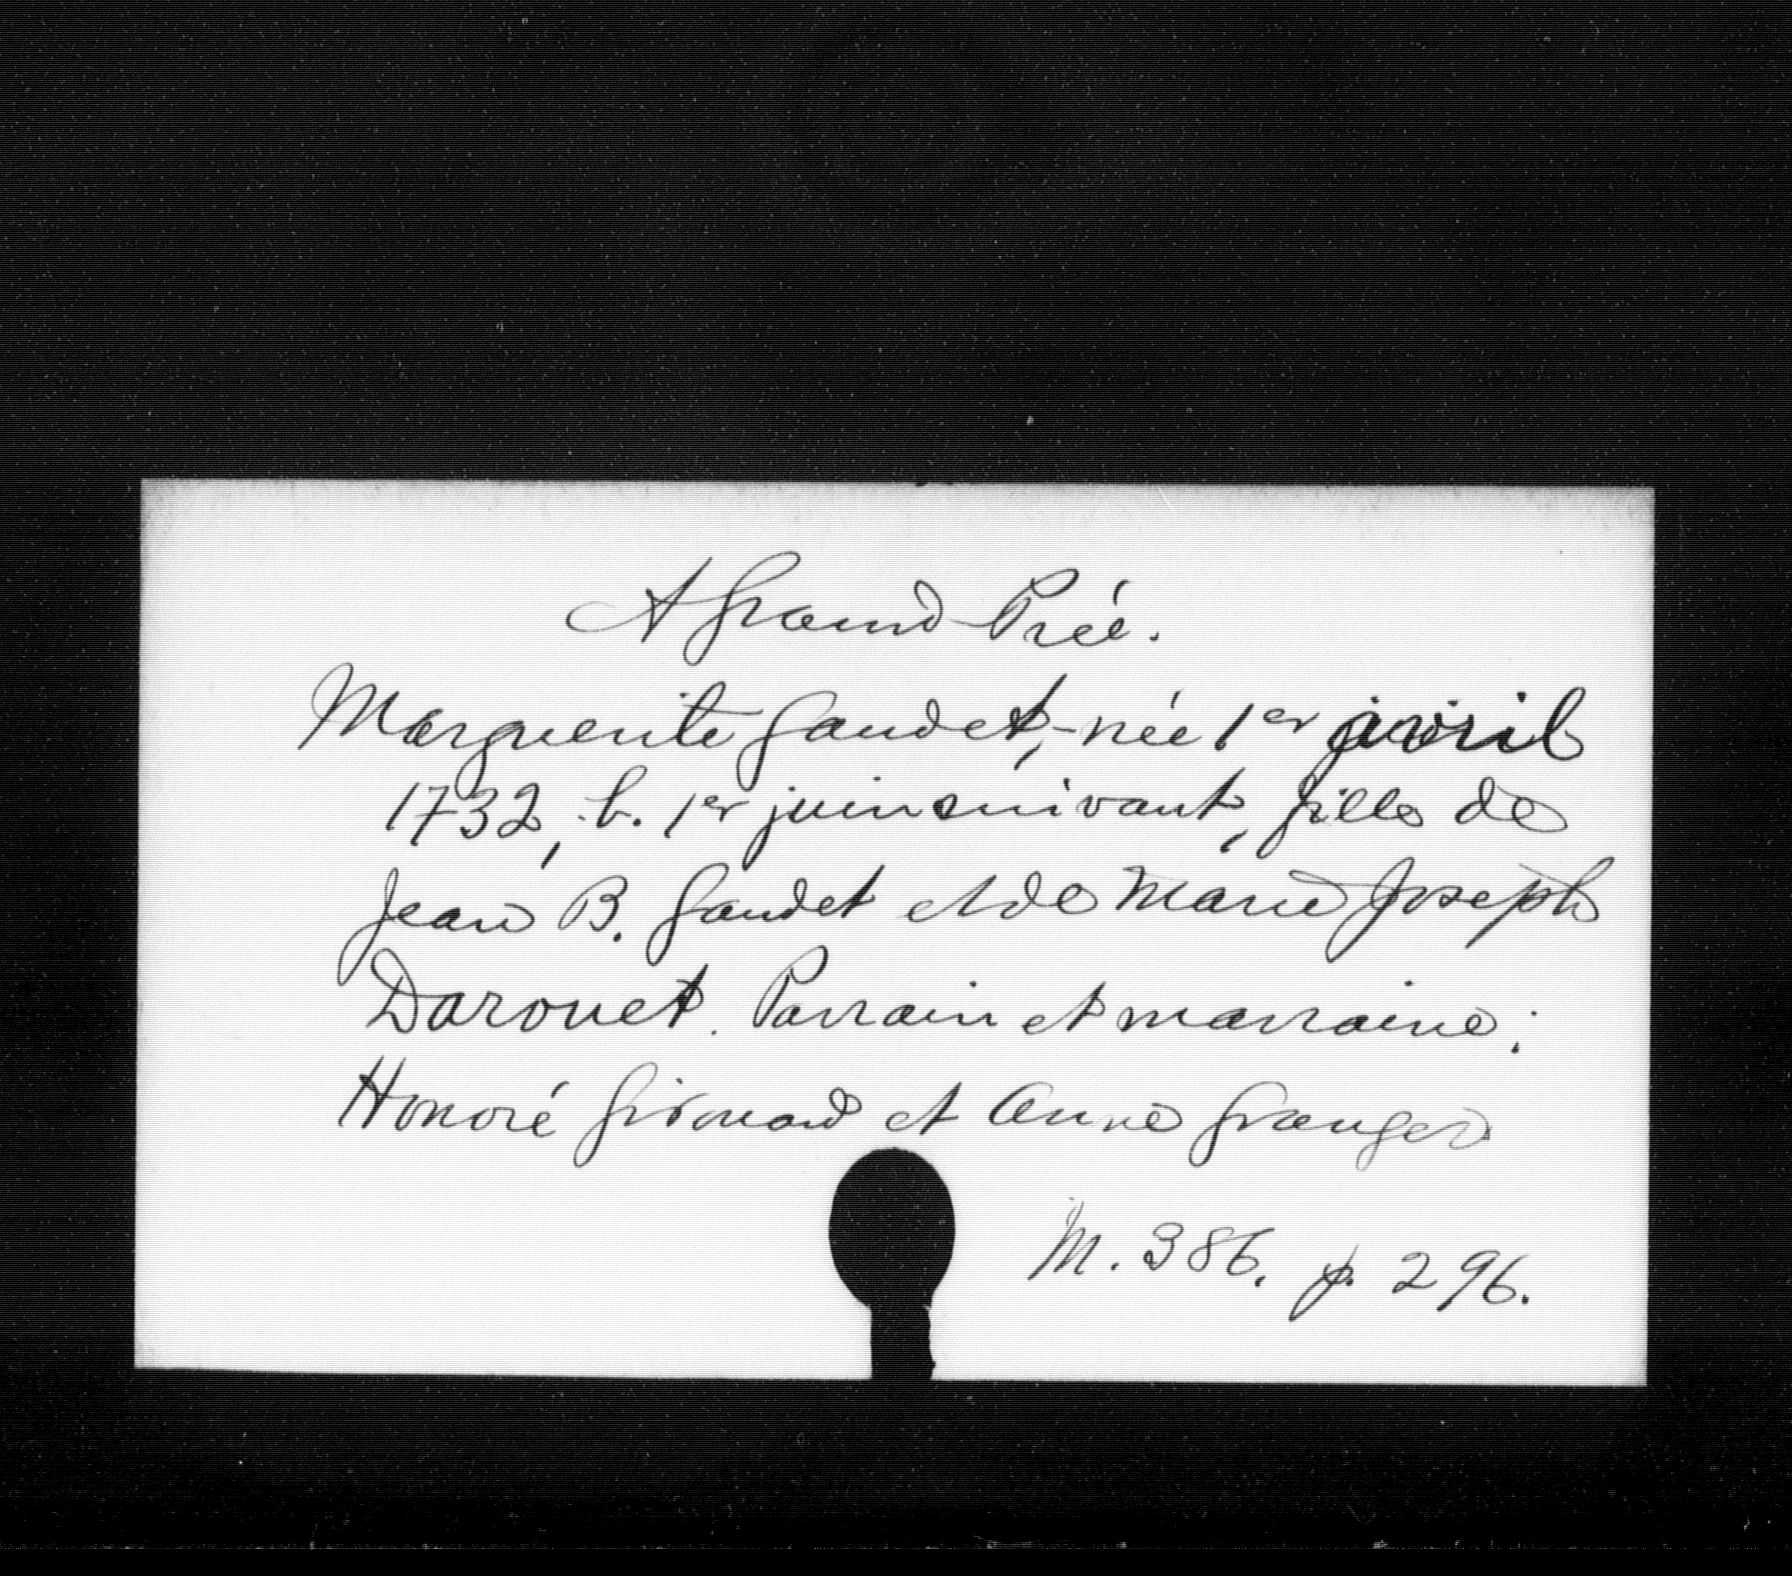 A Grand-Prée.
Marguerite Gaudet, née 1er avril
1732, b. 1er juin suivant, fille de
Jean B. Gaudet et de Marie Joseph
Darouet. Parrain et marraine:
Honoré Girouard et Anne Granger
M. 386. p. 296.